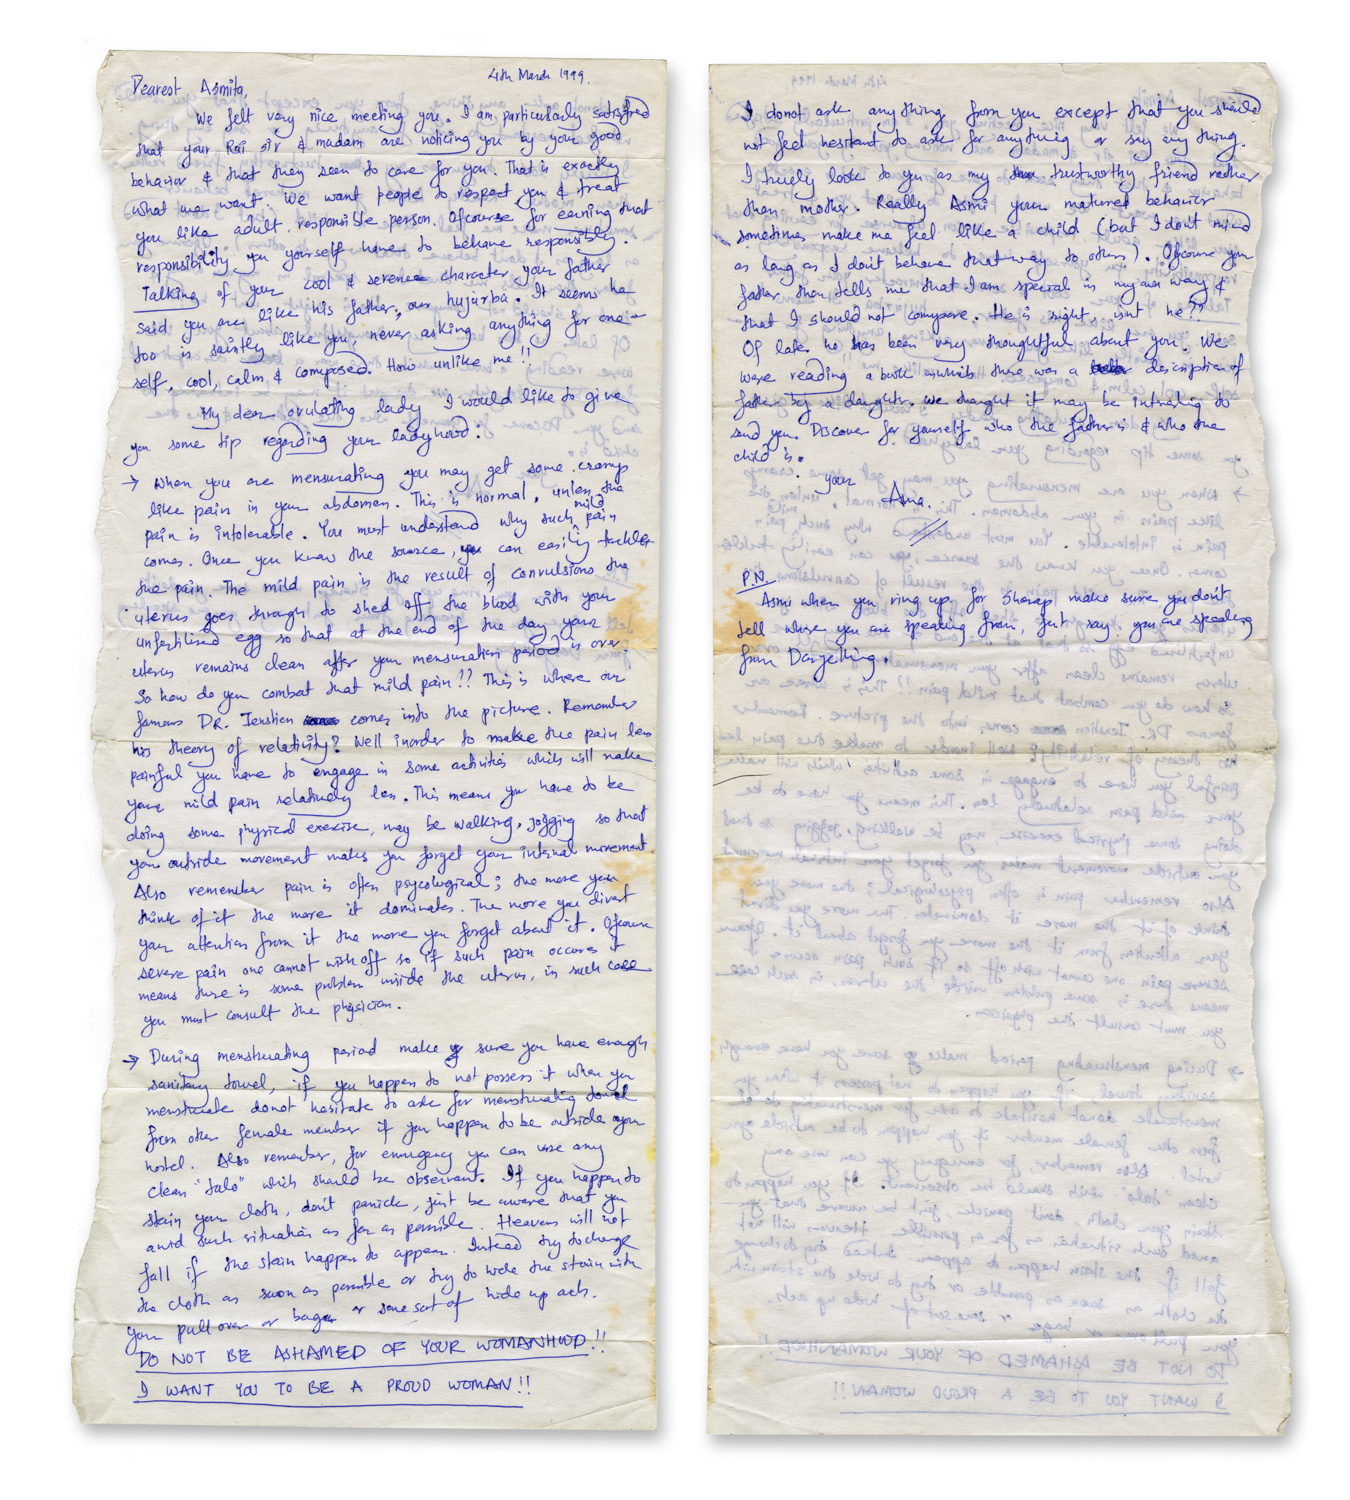 4th March 1999.
Dearest Asmita,
We felt very nice meeting you. I am particularly satisfied
that your Rai sir & madam are noticing you by your good
behavior & that they seen to care for you. That is exactly
what we want. We want people to respect you & treat
you like adult, responsible person. Ofcourse for earning that
responsibility you yourself have to behave responsibly.
Talking of your cool & serene character, your father
said you are like his father, our hujurba. It seems he
too is saintly like you, never asking anything for one-
self, cool, calm & composed. How unlike me!!
My dear ovulating lady I would like to give
you some tip regarding your ladyhood.
→ When you are mensurating you may get some cramp
like pain in your abdomen. This is normal, unless the
pain is intolerable. You must understand why such mild pain
comes. Once you know the source, you can easily tackle
the pain. The mild pain is the result of convulsions the
uterus goes through to shed off the blood with your
unfertilised egg so that at the end of the day your
uterus remains clean after your mensuration period is over.
So how do you combat that mild pain?? This is where our
famous DR. Ienstien comes into the picture. Remember
his theory of relativity? Well inorder to make the pain less
painful you have to engage in some activities which will make
your mild pain relatively less. This means you have to be
doing some physical exercise, may be walking, jogging so that
you outside movement makes you forget your internal movement.
Also remember pain is often psycological; the more you
think of it the more it dominates. The more you divert
your attention from it the more you forget about it. Ofcourse
severe pain one cannot wish off so if such pain occures it
means there is some problem inside the uterus, in such case
you must consult the physician.
→ During menstruating period make sure you have enough
sanitary towel, if you happen to not possess it when you
menstruate donot hesitate to ask for menstruating towel
from other female member if you happen to be outside your
hostel. Also remember, for emergency you can use any
clean "talo" which should be observant. If you happen to
stain your cloth, don't panick, just be aware that you
avoid such situation as far as possible. Heavens will not
fall if the stain happen to appear. Instead try to change
the cloth as soon as possible or try to hide the stain with
your pull over or bag or some sort of hide up acts.
DO NOT BE ASHAMED OF YOUR WOMANHOOD!!
I WANT YOU TO BE A PROUD WOMAN!!
I donot ask anything from you except that you should
not feel hesitant to ask for anything or say any thing.
I truely look to you as my trustworthy friend rather
than mother. Really Asmi your matured behavior
sometimes make me feel like a child (but I don't mind
as long as I don't behave that way to others). Ofcourse your
father then tells me that I am special in my own way &
that I should not compare. He is right, isnt he??
Of late he has been very thoughtful about you. We
were reading a book in which there was a description of
father by a daughter. We thought it may be intresting to
send you. Discover for yourself who the father is & who the
child is.
your
Ama.
P.N.
Asmi when you ring up for Sherap make sure you don't
tell where you are speaking from, just say you are speaking
from Darjelling.